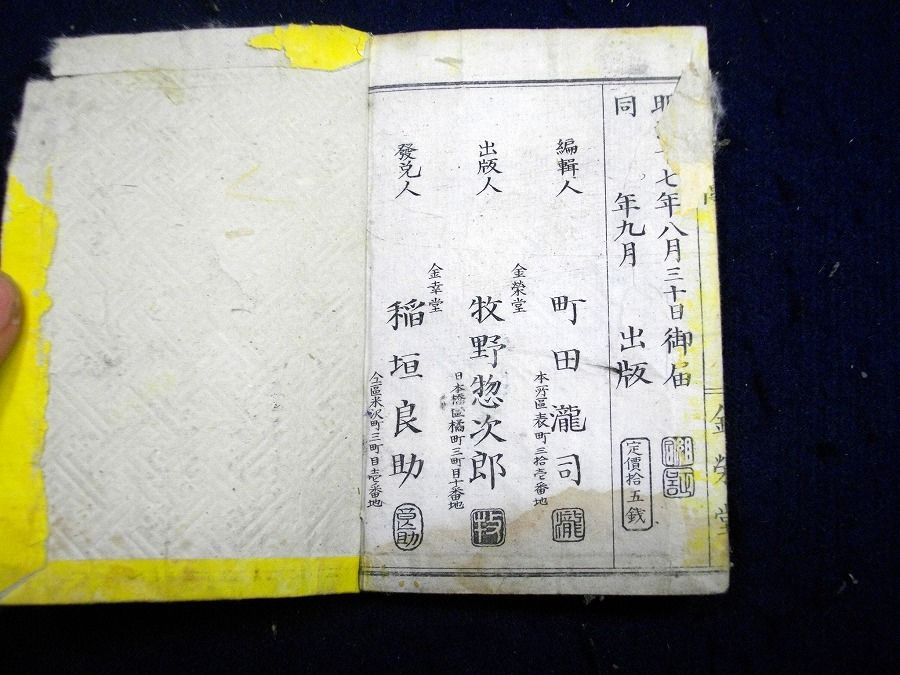 明治十七年八月三十日御届
同 年九月 出版
定價拾五銭
編輯人 町田瀧司
本所區表町三拾壱番地
瀧
出版人 金榮堂 牧野惣次郎
日本橋區橘町三町目十番地
牧
發兌人 金幸堂 稲垣良助
仝區米沢町三町目壱番地
良助
金榮堂